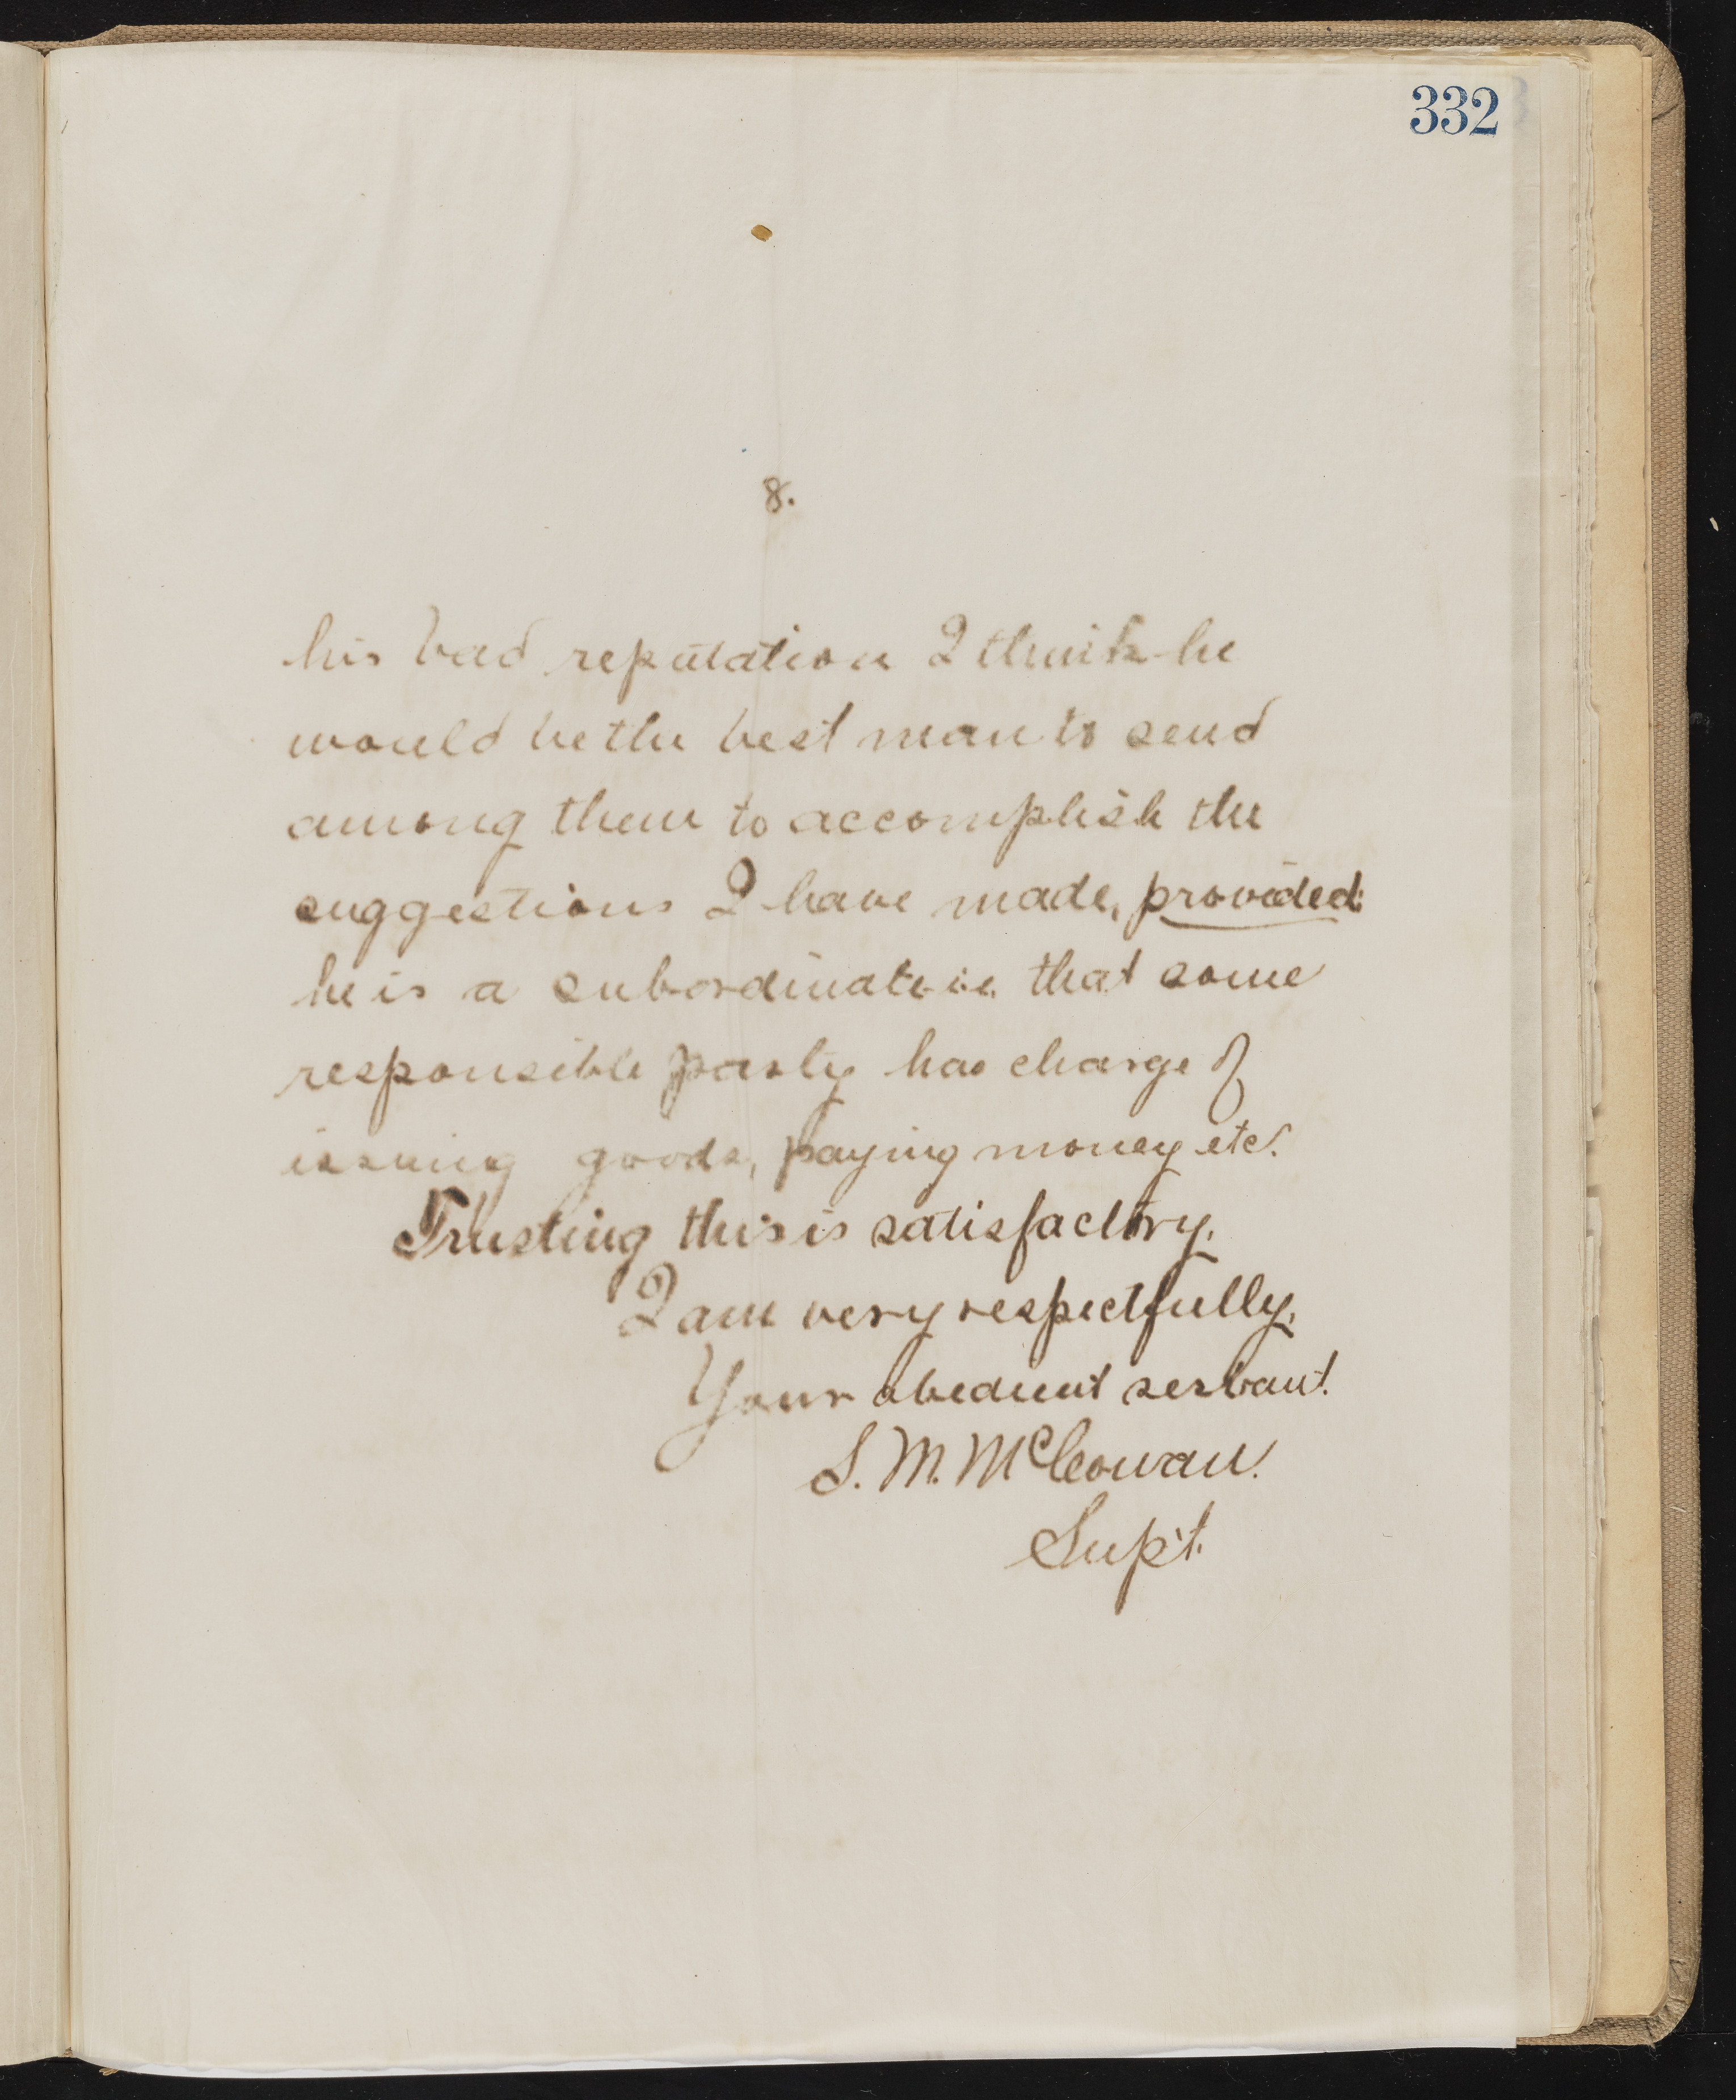 332
8.
his bad reputation I think he
would be the best man to send
among them to accomplish the
suggestions I have made, provided:
he is a subordinate i.e. that some
responsible party has charge of
issuing goods, paying money etc.
Trusting this is satisfactory.
I am very respectfully,
Your obedient servant.
S. M. McCowan.
Sup't.